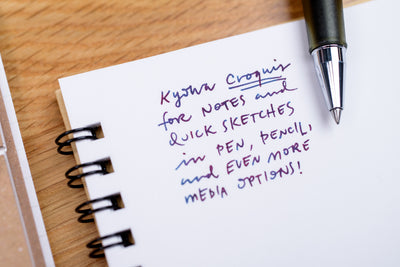 Kyowa Croquis
for NOTES and
QUICK SKETCHES
in PEN, PENCIL,
and EVEN MORE
MEDIA OPTIONS!